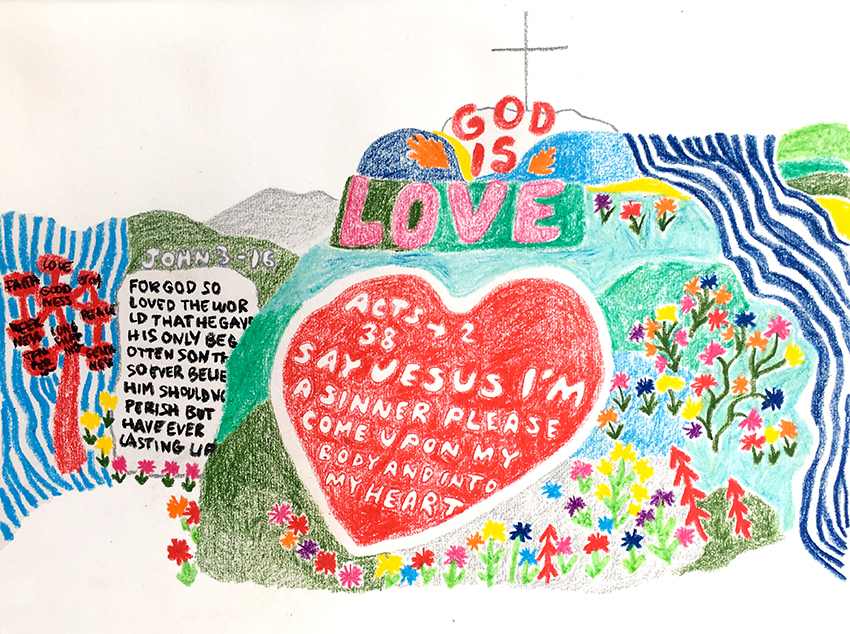 GOD
IS
LOVE
JOHN 3-16
FOR GOD SO
LOVED THE WOR
LD THAT HE GAVE
HIS ONLY BEG
OTTEN SON TH
SO EVER BELIE
HIM SHOULD NO
PERISH BUT
HAVE EVER
LASTING
ACTS 2
38
SAY JESUS I'M
A SINNER PLEASE
COME UPON MY
BODY AND INTO
MY HEART
LOVE
FAITH
JOY
GOOD
NESS
PEACE
MEEK
NESS
LONG